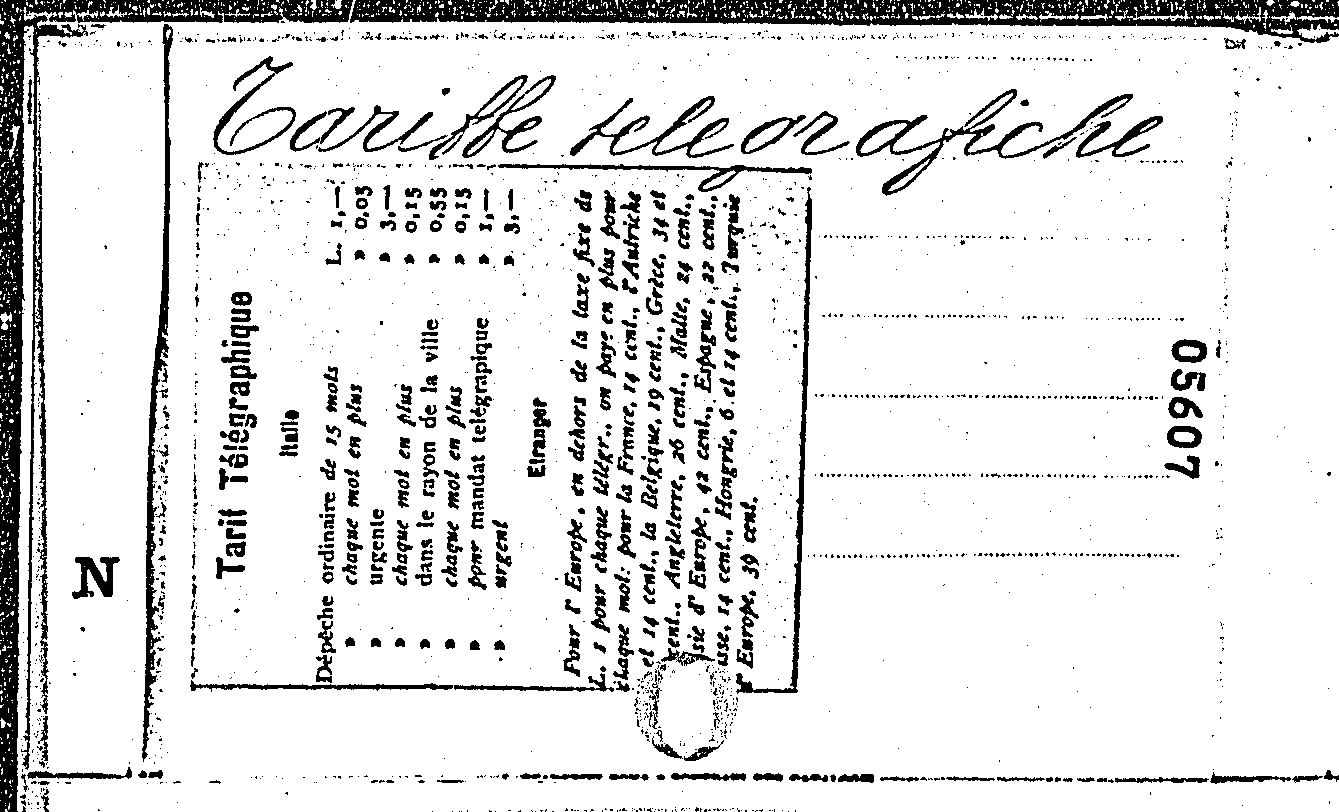 Tariffe telegrafiche
Tarif Télégraphique
Italie
Dépêche ordinaire de 15 mots L. 1,—
» chaque mot en plus » 0,05
» urgente » 3,—
» chaque mot en plus » 0,15
» dans le rayon de la ville » 0,55
» chaque mot en plus » 0,15
» pour mandat telégrapique » 1,—
» urgent » 3,—
Etranger
Pour l'Europe, en dehors de la taxe fixe de
L. 1 pour chaque télégr., on paye en plus pour
chaque mot: pour la France, 14 cent., l'Autriche
et 14 cent., la Belgique, 19 cent., Grèce, 34 et
cent., Angleterre, 26 cent., Malte, 24 cent.,
sie d'Europe, 42 cent., Espagne, 22 cent.,
sse, 14 cent., Hongrie, 6 et 14 cent., Turquie
d'Europe, 39 cent.
05607
N